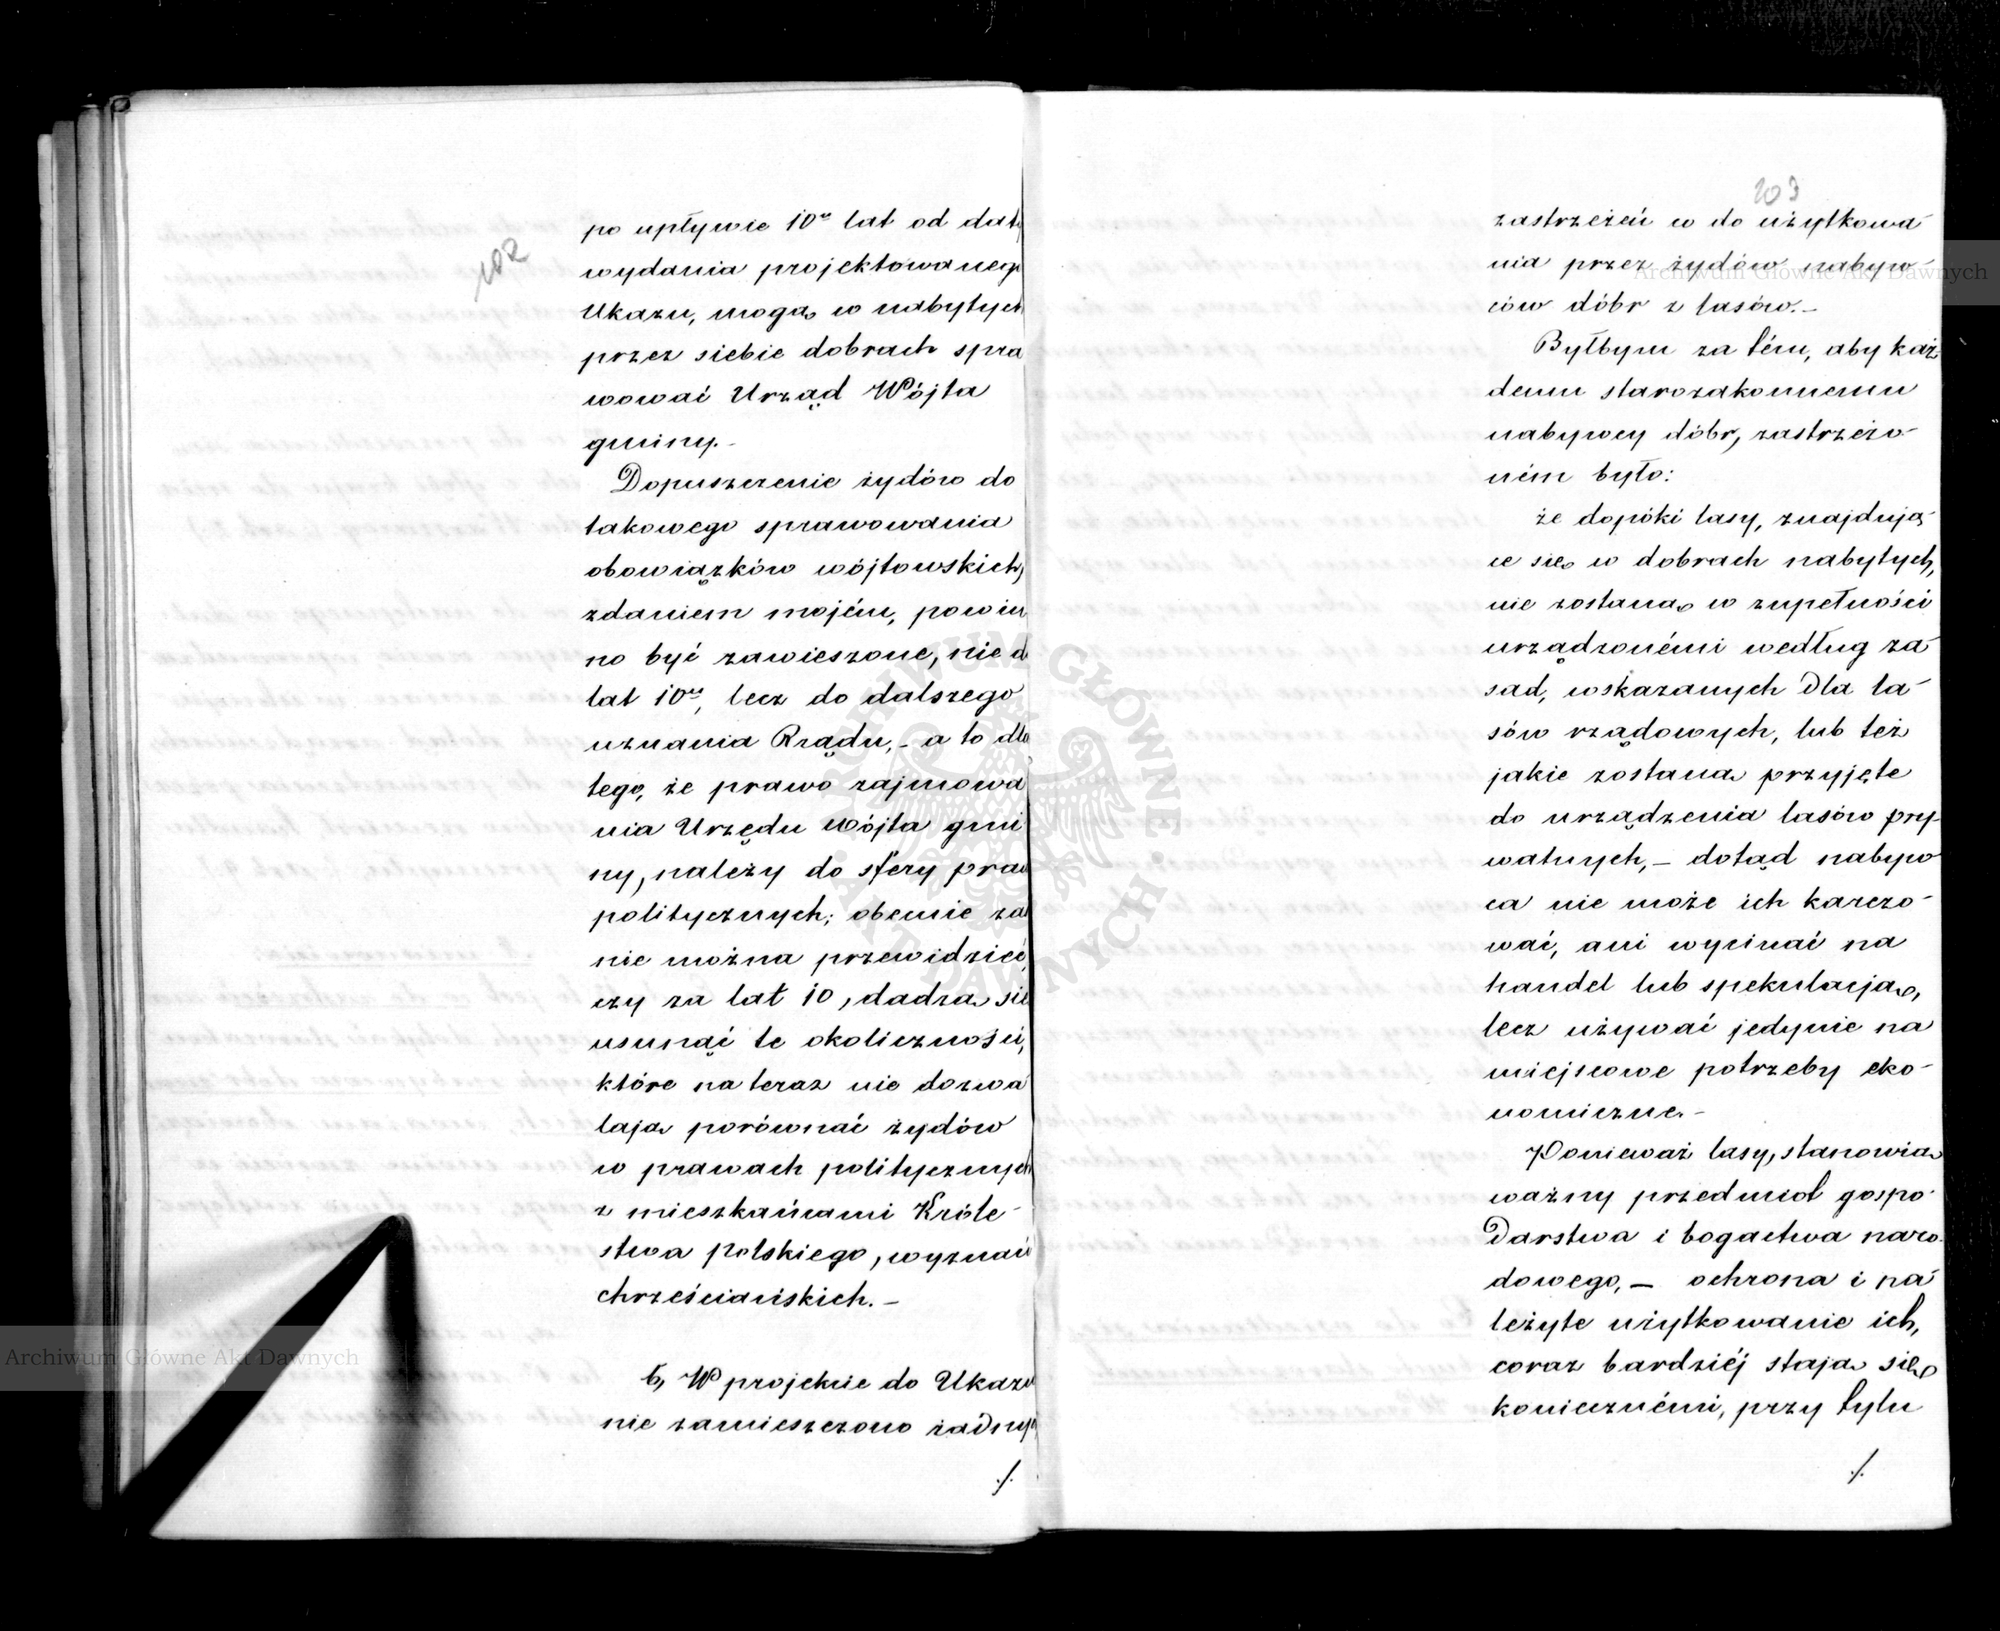 102
po upływie 10u lat od daty
wydania projektowanego
Ukazu, mogą w nabytych
przez siebie dobrach spra
wować Urząd Wójta
gminy.-
Dopuszczenie żydów do
takowego sprawowania
obowiązków wójtowskich,
zdaniem mojém, powin
no być zawieszone, nie d
lat 10u, lecz do dalszego
uznania Rządu,- a to dla
tego, że prawo zajmowa
nia Urzędu Wójta gmi
ny, należy do sfery praw
politycznych; obecnie za
nie można przewidzieć,
czy za lat 10, dadzą się
usunąć te okoliczności,
które na teraz nie dozwa
lają porównać żydów
w prawach politycznych
z mieszkańcami Króle-
stwa polskiego, wyznań
chrześciańskich.-
6, W projekcie do Ukazu
nie zamieszczono żadnych
./.
103
zastrzeżeń w do użytkowa-
nia przez żydów nabyw-
ców dóbr z lasów.-
Byłbym za tém, aby każ-
demu starozakonnemu
nabywcy dóbr, zastrzeżo-
ném było:
że dopóki lasy, znajdują-
ce się w dobrach nabytych,
nie zostaną w zupełności
urządzonémi według za-
sad, wskazanych dla la-
sów rządowych, lub też
jakie zostaną przyjęte
do urządzenia lasów pry-
watnych,- dotąd nabyw-
ca nie może ich karczo-
wać, ani wycinać na
handel lub spekulacją,
lecz używać jedynie na
miejscowe potrzeby eko-
nomiczne.-
Ponieważ lasy, stanowią
ważny przedmiot gospo-
darstwa i bogactwa naro-
dowego,- ochrona i na-
leżyte użytkowanie ich,
coraz bardziéj stają się
konieczném, przy tylu
./.
Archiwum Główne Akt Dawnych
Archiwum Główne Akt Dawnych
ARCHIWUM GŁÓWNE AKT DAWNYCH